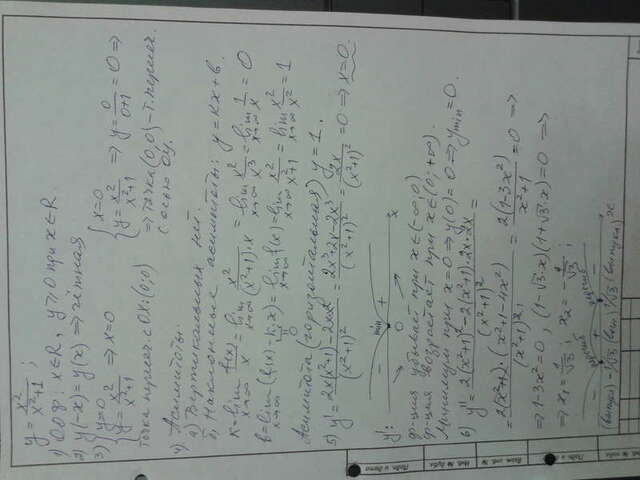 y = x²/(x²+1);
1) ООФ: x∈R, y≥0 при x∈R.
2) y(-x) = y(x) ⇒ чётная
3) { y=0 { x=0
{ y = x²/(x²+1) ⇒ x=0 { y = x²/(x²+1) ⇒ y = 0/(0+1) = 0 ⇒
точка перес. с OX: (0,0) ⇒ точка (0,0) – т. перес.
с осью OY.
4) Асимптоты.
а) Вертикальных нет.
б) Наклонные асимптоты: y = kx + b.
k = lim x→∞ f(x)/x = lim x→∞ x²/((x²+1)·x) = lim x→∞ x²/x³ = lim x→∞ 1/x = 0
b = lim x→∞ (f(x) - k·x) = lim x→∞ f(x) = lim x→∞ x²/(x²+1) = lim x→∞ x²/x² = 1
0
Асимптота (горизонтальная) y = 1.
5) y' = (2x(x²+1) - 2x·x²)/(x²+1)² = (2x³+2x-2x³)/(x²+1)² = 2x/(x²+1)² = 0 ⇒ x=0.
y': - min + x
0
ф-ция убывает при x∈(-∞;0)
ф-ция возрастает при x∈(0;+∞)
Минимум при x=0 ⇒ y(0)=0 ⇒ y min = 0.
6)
= 2(1-3x²)
= 0 ⇒
⇒ 1-3x²=0, (1-√3·x)(1+√3·x)=0 ⇒
⇒ x₁ = 1/√3; x₂ = -1/√3;
- + -
-1/√3 1/√3 x